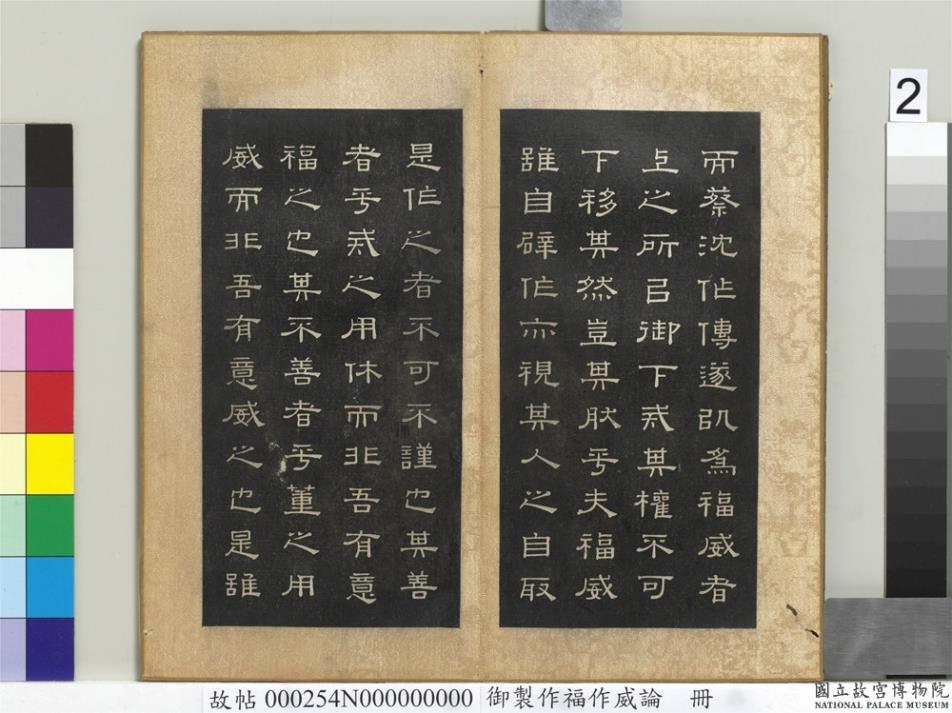 而蔡沈作傳遂爲福威者
上之所㠯御下戒其權不可
下移其然豈其肰乎夫福威
雖自辟作亦視其人之自取
是作之者不可不謹也其善
者乎戒之用休而非吾有意
福之也其不善者乎董之用
威而非吾有意威之也是雖
2
故帖 000254N000000000 御製作福作威論 冊
國立故宮博物院
NATIONAL PALACE MUSEUM